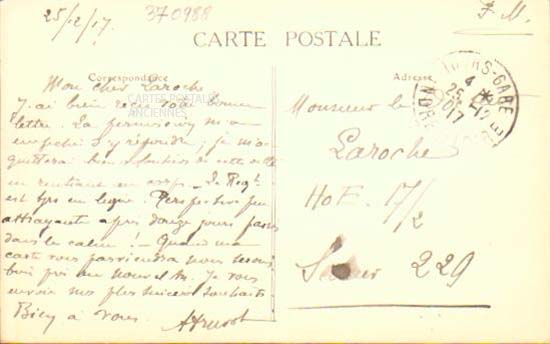 25/12/17.
370988
F. M.
CARTE POSTALE
Correspondance
Adresse
CARTES POSTALES
ANCIENNES
TOURS-GARE
4
25-12
17
INDRE
Mon cher Laroche
J'ai bien reçu votre bonne
lettre. La permission m'a
empêché d'y répondre; je m'a
bien de cette
en rentrant au corps. Le Régt
est en ligne. Perspective peu
attrayante après douze jours passés
dans le calme! - Quand ma
carte vous parviendra nous serons
bien près du nouvel An. Je vous
envoie mes plus sincères souhaits
Bien à vous.
Monsieur le
Laroche
HoE. 17/2
Secteur 229